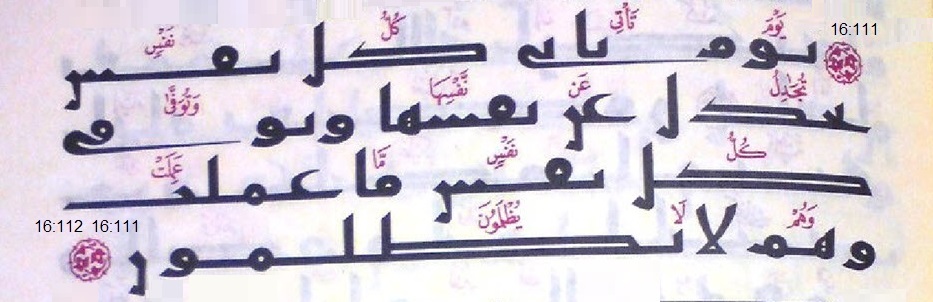 16:111
يَوْمَ تَأْتِي كُلُّ نَفْسٍ
يوم تاتى كل نفس
تُجَٰدِلُ عَن نَّفْسِهَا وَتُوَفَّىٰ
تجدل عن نفسها وتوفى
كُلُّ نَفْسٍ مَّا عَمِلَتْ
كل نفس ما عملت
وَهُمْ لَا يُظْلَمُونَ
وهم لا يظلمون
16:112 16:111